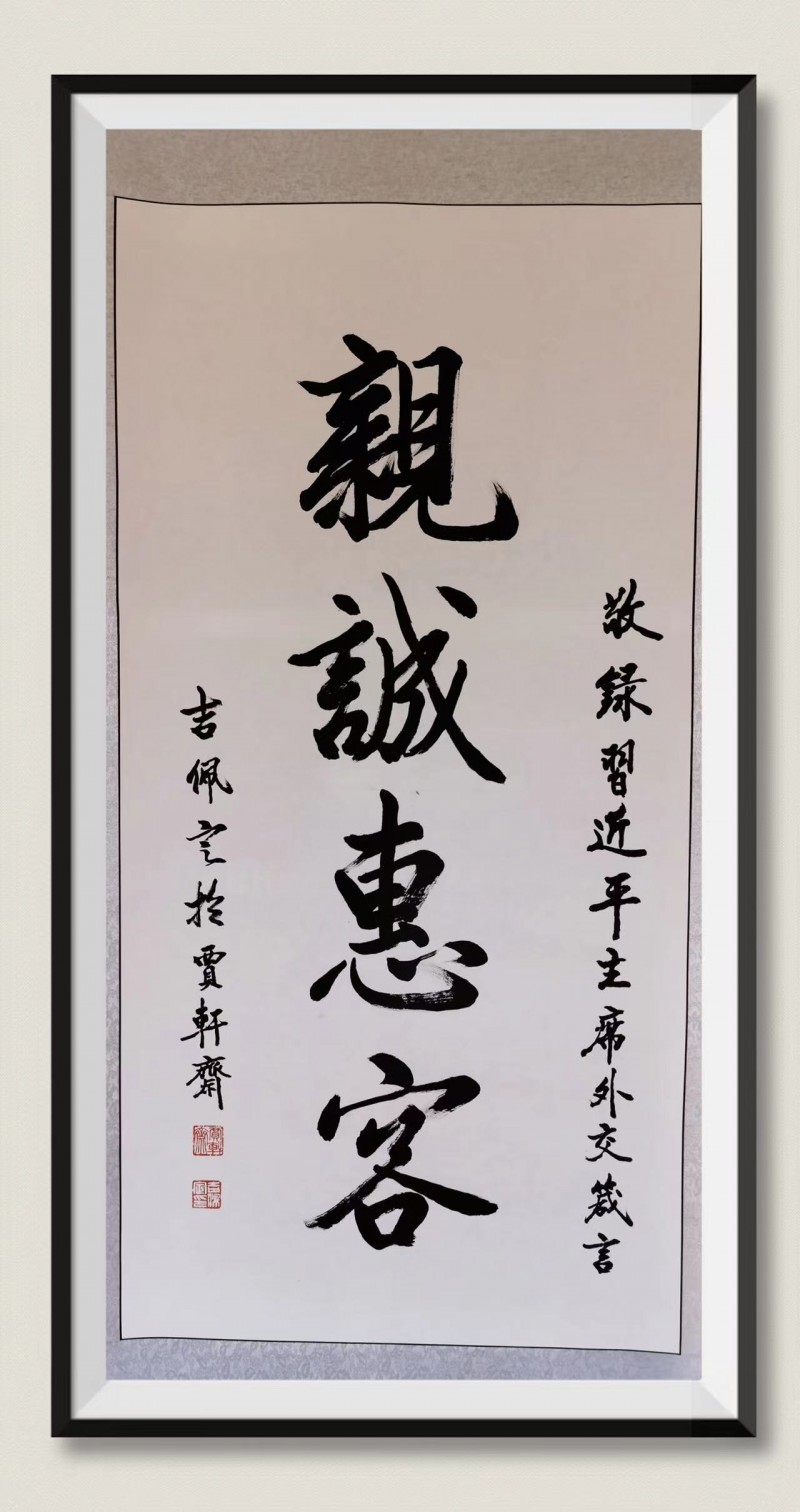 敬錄習近平主席外交箴言
親誠惠容
吉佩定於賈軒齋